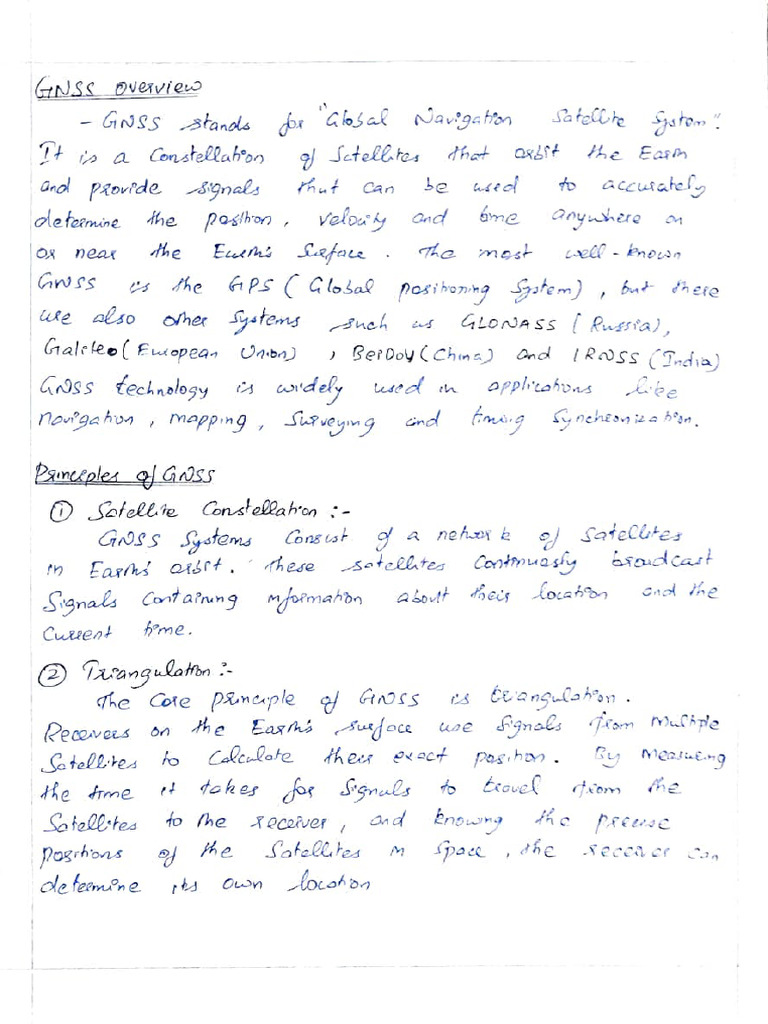 GNSS overview
- GNSS stands for "Global Navigation Satellite System".
It is a Constellation of Satellites that orbit the Earth
and provide signals that can be used to accurately
determine the position, velocity and time anywhere on
or near the Earth's Surface. The most well-known
GNSS is the GPS (Global positioning System), but there
are also other systems such as GLONASS (Russia),
Galileo (European Union), BeiDou (China) and IRNSS (India)
GNSS technology is widely used in applications like
navigation, mapping, surveying and timing synchronization.
Principles of GNSS
① Satellite Constellation :-
GNSS Systems Consist of a network of satellites
in Earth's orbit. These satellites continuously broadcast
Signals Containing information about their location and the
current time.
② Triangulation :-
The Core principle of GNSS is triangulation.
Receivers on the Earth's surface use signals from multiple
Satellites to Calculate their exact position. By measuring
the time it takes for signals to travel from the
Satellites to the receiver, and knowing the precise
positions of the Satellites in space, the receiver can
determine its own location